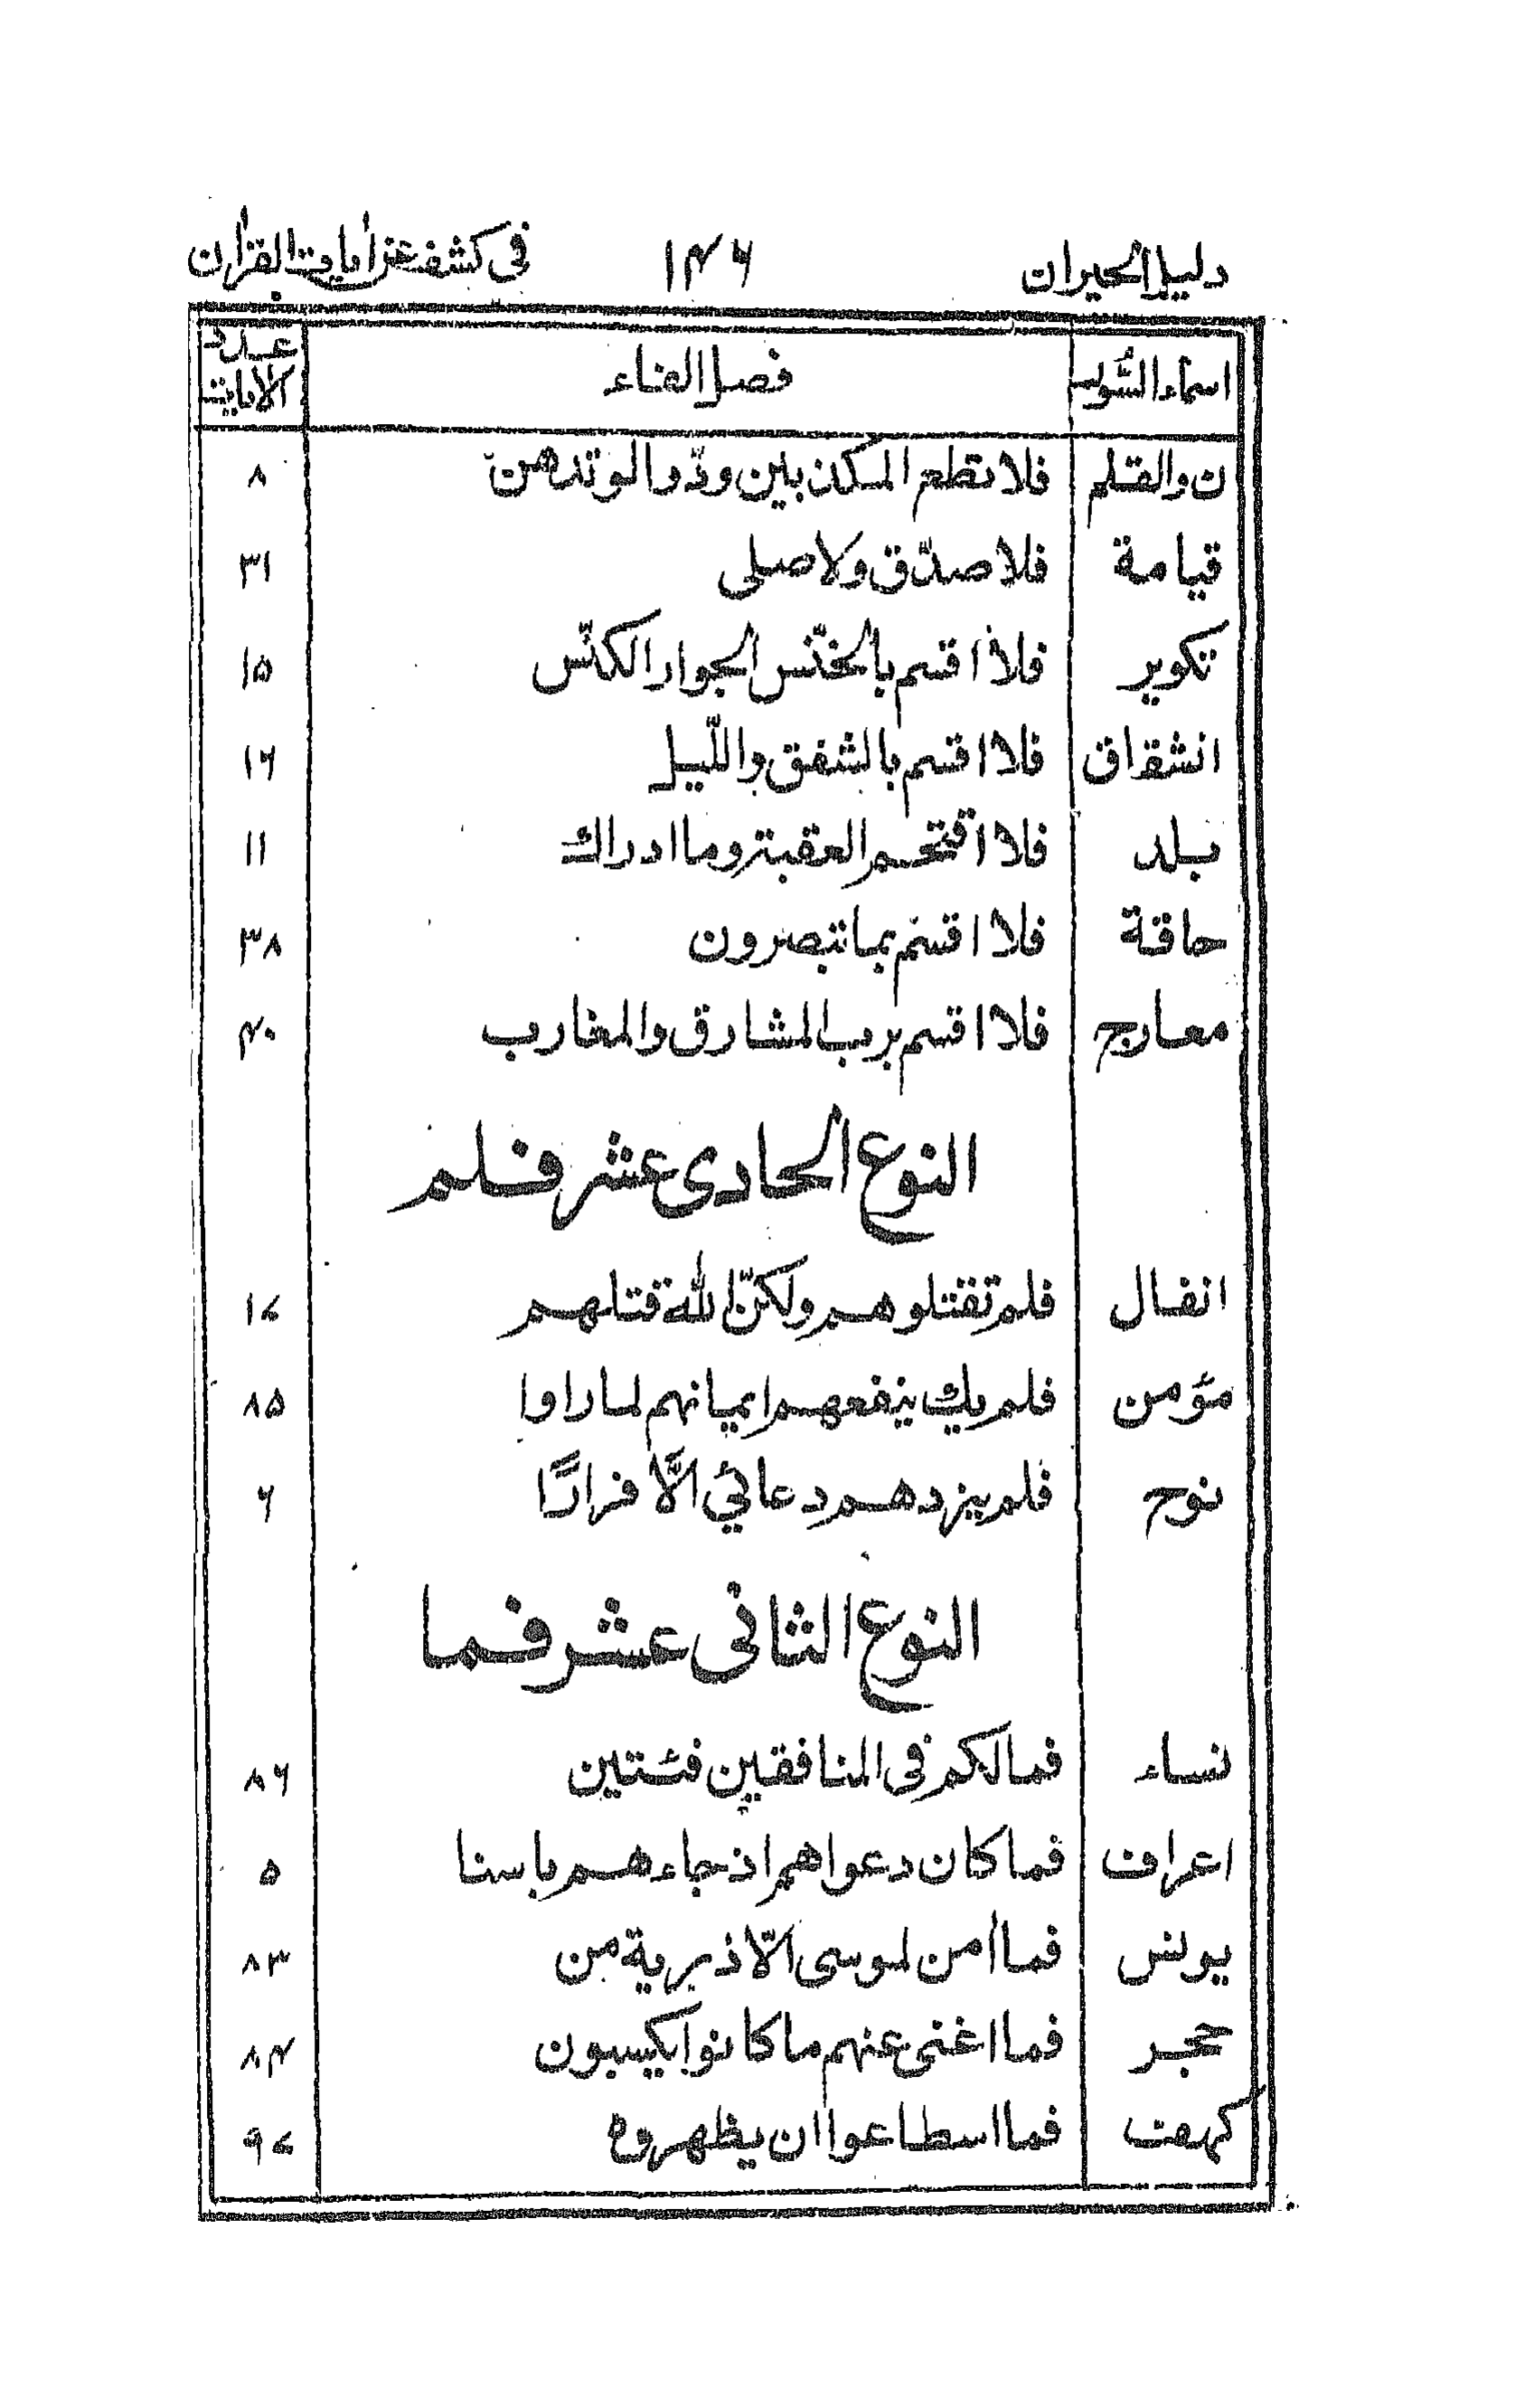 دليل الحيران ۱۴۶ في كشف عن آيات القرآن
اسماء السّور فصل الفاء عدد الآيات
ن والقلم فلا تطع المكذبين ودّوا لو تدهن ۸
قيامة فلا صدّق ولا صلى ۳۱
تكوير فلا اقسم بالخنّس الجوار الكنّس ۱۵
انشقاق فلا اقسم بالشفق واللّيل ۱۶
بلد فلا اقتحم العقبة وما ادراك ۱۱
حاقة فلا اقسم بما تبصرون ۳۸
معارج فلا اقسم برب المشارق والمغارب ۴۰
النوع الحادى عشر فلم
انفال فلم تقتلوهم ولكنّ الله قتلهم ۱۷
مؤمن فلم يك ينفعهم ايمانهم لما راوا ۸۵
نوح فلم يزدهم دعائي الّا فرارًا ۶
النوع الثانى عشر فما
نساء فما لكم فى المنافقين فئتين ۸۶
اعراف فما كان دعواهم اذ جاءهم باسنا ۵
يونس فما امن لموسى الّا ذرية من ۸۳
حجر فما اغنى عنهم ما كانوا يكسبون ۸۴
كهف فما اسطاعوا ان يظهروه ۹۷